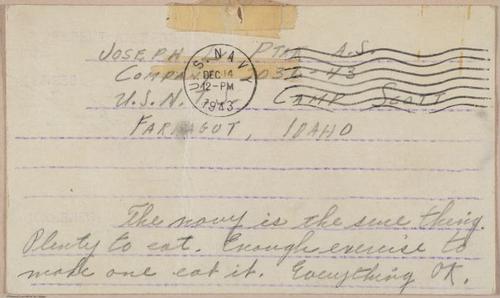 JOSEPH PTAK A.S.
COMPANY 1032-43
U.S.N.T.S. CAMP SCOTT
FARRAGUT, IDAHO
U.S. NAVY
DEC 14
12-PM
1943
The navy is the sure thing.
Plenty to eat. Enough exercise to
make one eat it. Everything OK.